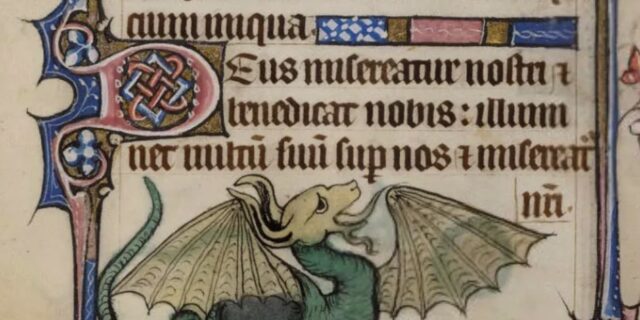 cum iniqua.
Deus misereatur nostri ⁊
benedicat nobis: illumi
net vultū suū sup nos ⁊ misereat᷑
nr̄i.